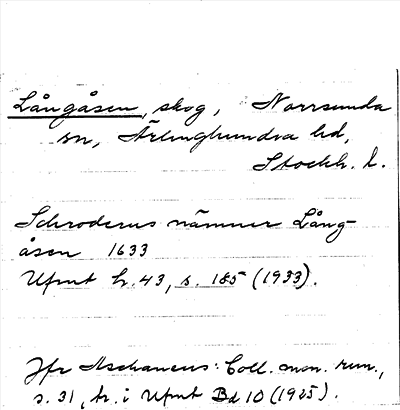 Långåsen, skog, Norrsunda
sn, Ärlinghundra hd,
Stockh. l.
Schroderus nämner Lång-
åsen 1633
Ufmt h. 43, s. 185 (1933).
Jfr Aschaneus: Coll. mon. run.,
s. 31, tr. i Ufmt Bd 10 (1925).